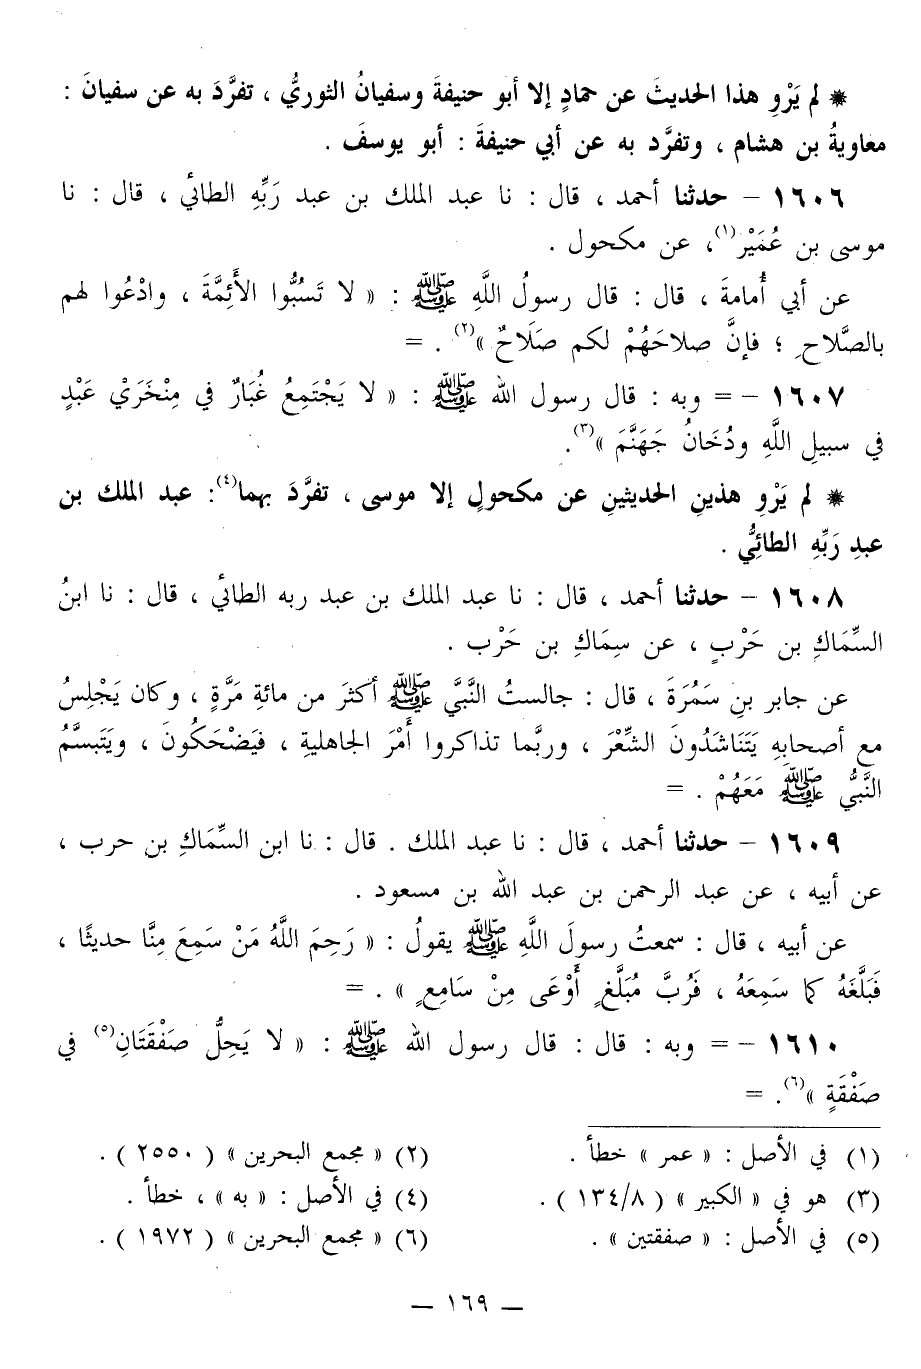 * لم يَرْوِ هذا الحديثَ عن حمادٍ إلا أبو حنيفةَ وسفيانُ الثوريُّ ، تفرَّدَ به عن سفيانَ :
معاويةُ بن هشام ، وتفرَّد به عن أبي حنيفةَ : أبو يوسفَ .
١٦٠٦ – حدثنا أحمد ، قال : نا عبد الملك بن عبد رَبِّهِ الطائي ، قال : نا
موسى بن عُمَيْر(١)، عن مكحول .
عن أبي أُمامةَ ، قال : قال رسولُ اللَّهِ ﷺ : « لا تَسُبُّوا الأَئِمَّةَ ، وادْعُوا لهم
بالصَّلاحِ ؛ فإنَّ صلاحَهُمْ لكم صَلَاحٌ »(٢) . =
١٦٠٧ – = وبه : قال رسول الله ﷺ : « لا يَجْتَمِعُ غُبَارٌ في مِنْخَرَيْ عَبْدٍ
في سبيلِ اللَّهِ ودُخَانُ جَهَنَّمَ »(٣).
* لم يَرْوِ هذينِ الحديثينِ عن مكحولٍ إلا موسى ، تفرَّدَ بهما(٤): عبد الملك بن
عبدِ رَبِّهِ الطائِيُّ .
١٦٠٨ – حدثنا أحمد ، قال : نا عبد الملك بن عبد ربه الطائي ، قال : نا ابنُ
السِّمَاكِ بن حَرْبٍ ، عن سِمَاكِ بن حَرْب .
عن جابر بنِ سَمُرَةَ ، قال : جالستُ النَّبيَّ ﷺ أكثرَ من مائةِ مَرَّةٍ ، وكان يَجْلِسُ
مع أصحابِهِ يَتَنَاشَدُونَ الشِّعْرَ ، وربَّما تذاكروا أَمْرَ الجاهليةِ ، فيَضْحَكُونَ ، ويَتَبسَّمُ
النَّبيُّ ﷺ مَعَهُمْ . =
١٦٠٩ – حدثنا أحمد ، قال : نا عبد الملك . قال : نا ابن السِّمَاكِ بن حرب ،
عن أبيه ، عن عبد الرحمن بن عبد الله بن مسعود .
عن أبيه ، قال : سمعتُ رسولَ اللَّهِ ﷺ يقولُ : « رَحِمَ اللَّهُ مَنْ سَمِعَ مِنَّا حديثًا ،
فَبَلَّغَهُ كما سَمِعَهُ ، فَرُبَّ مُبَلَّغٍ أَوْعَى مِنْ سَامِعٍ » . =
١٦١٠ – = وبه : قال : قال رسول الله ﷺ : « لا يَحِلُّ صَفْقَتَانِ(٥) في
صَفْقَةٍ »(٦). =
(١) في الأصل : « عمر » خطأ .
(٢) « مجمع البحرين » ( ٢٥٥٠ ) .
(٣) هو في « الكبير » ( ١٣٤/٨ ) .
(٤) في الأصل : « به » ، خطأ .
(٥) في الأصل : « صفقتين » .
(٦) « مجمع البحرين » ( ١٩٧٢ ) .
– ١٦٩ –